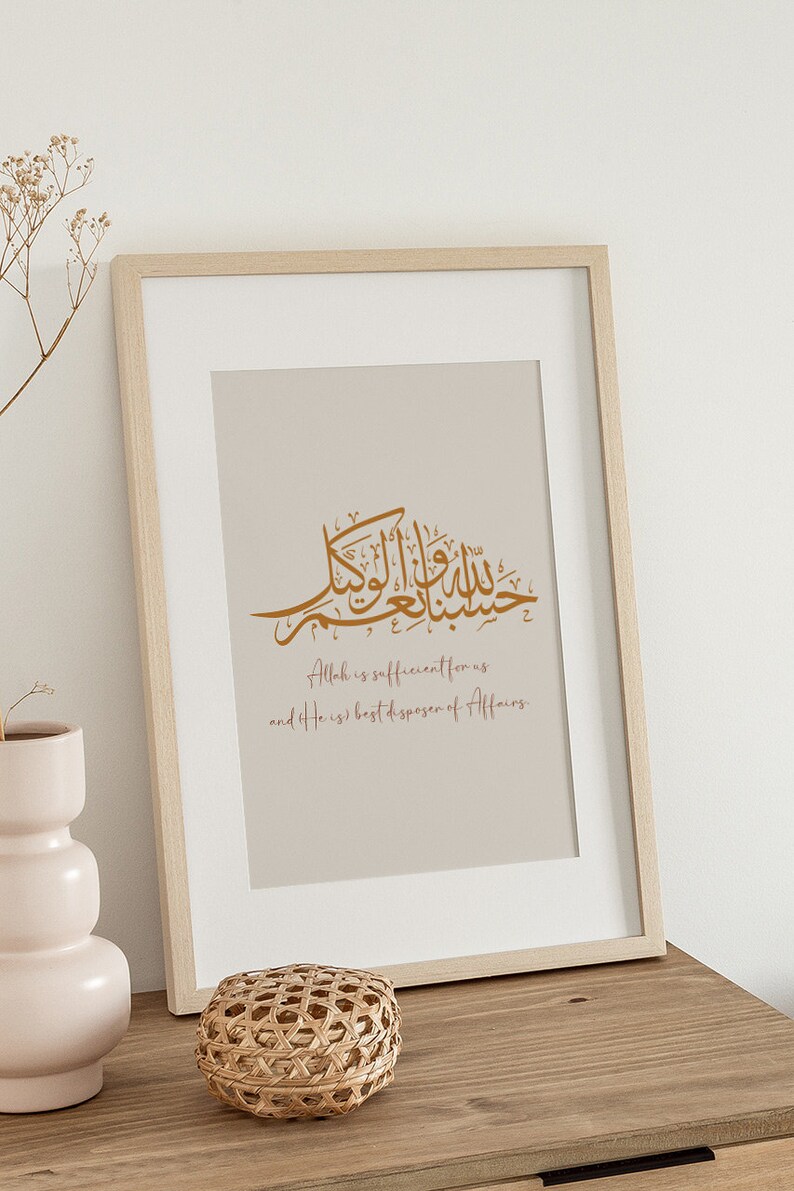 حَسْبُنَا اللَّهُ وَنِعْمَ الْوَكِيلُ
Allah is sufficient for us
and (He is) best disposer of Affairs.